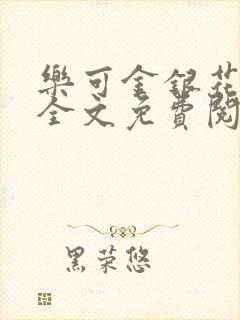 樂可金銀花
全文免費閱
黑荣悠